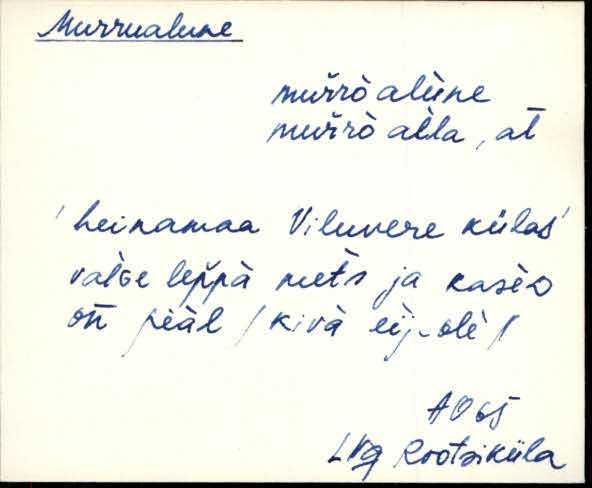 Murrualune
mur̆rò alùne
mur̆rò al̀la, at
'heinamaa Viluvere külas'
val̀Ge lep̆pà met̀s ja kasèD
on peàl / kivà eij-olè /
AO 65
LNg Rootsiküla